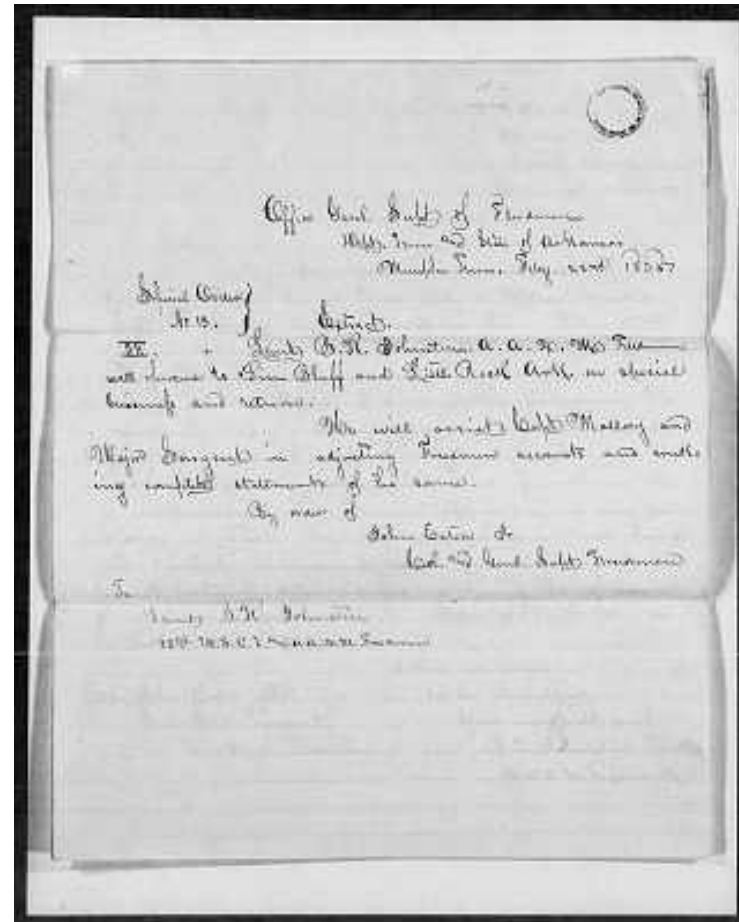 Office Genl Supt of Freedmen
Dept. Tenn and State of Arkansas
Memphis Tenn. Feby 22nd 1865
Special Orders
No 13. Extract.
Lieut B. K. Johnston A. A. Q. M. Freedmen
will proceed to Pine Bluff and Little Rock Ark. on special
business and return.
He will assist Capt Mallory and
Major Sargent in adjusting Freedmen accounts and mak-
ing complete statements of the same.
By order of
John Eaton Jr
Col. and Genl Supt Freedmen
To
Lieut Johnston
U.S.C.I. A.A.Q.M. Freedmen